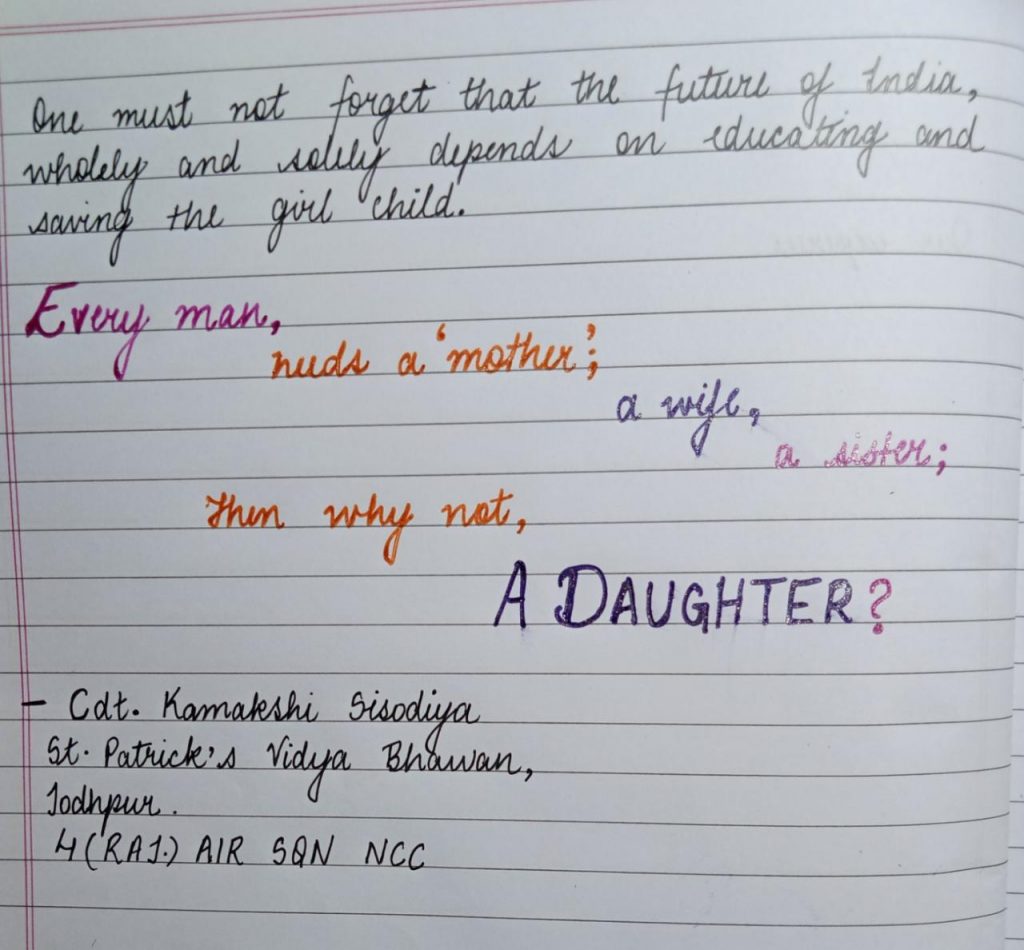 One must not forget that the future of India,
wholely and solely depends on educating and
saving the girl child.
Every man,
needs a 'mother';
a wife,
a sister;
then why not,
A DAUGHTER?
- Cdt. Kamakshi Sisodiya
St. Patrick's Vidya Bhawan,
Jodhpur.
4 (RAJ.) AIR SQN NCC